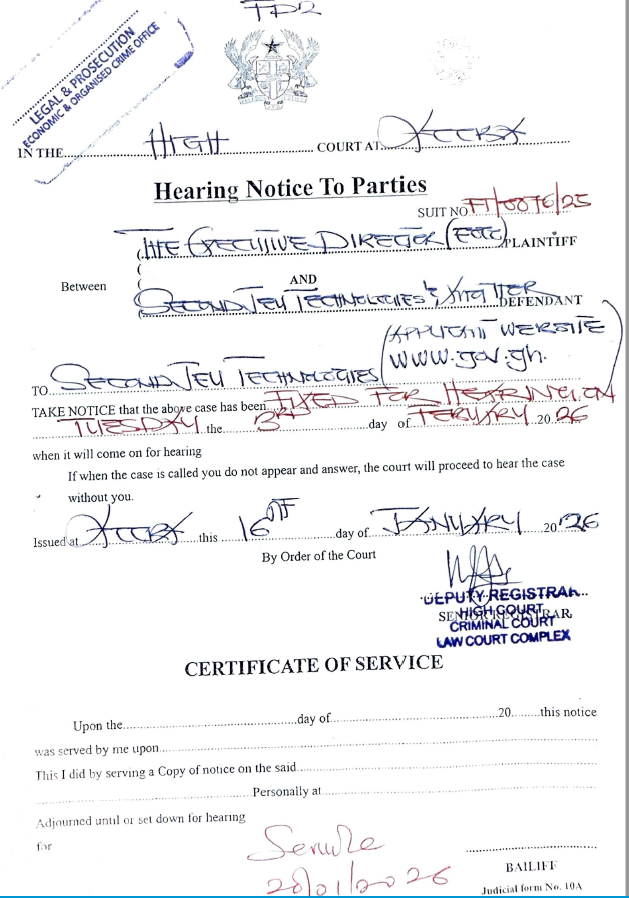 TDR
LEGAL & PROSECUTION
ECONOMIC & ORGANISED CRIME OFFICE
IN THE HIGH COURT AT ACCRA
Hearing Notice To Parties
SUIT NO FT/0076/25
THE EXECUTIVE DIRECTOR (EOCO) PLAINTIFF
Between AND
SECOND TEU TECHNOLOGIES & ANOTHER DEFENDANT
(APPLICANT WEBSITE
www.gov.gh.
TO SECOND TEU TECHNOLOGIES
TAKE NOTICE that the above case has been FIXED FOR HEARING ON
TUESDAY the 3RD day of FEBRUARY 2026
when it will come on for hearing
If when the case is called you do not appear and answer, the court will proceed to hear the case
without you.
Issued at ACCRA this 16TH day of JANUARY 2026
By Order of the Court
DEPUTY REGISTRAR
SENIOR REGISTRAR
HIGH COURT
CRIMINAL COURT
LAW COURT COMPLEX
CERTIFICATE OF SERVICE
Upon the day of 20 this notice
was served by me upon
This I did by serving a Copy of notice on the said
Personally at
Adjourned until or set down for hearing
for
20/01/2026
BAILIFF
Judicial form No. 10A